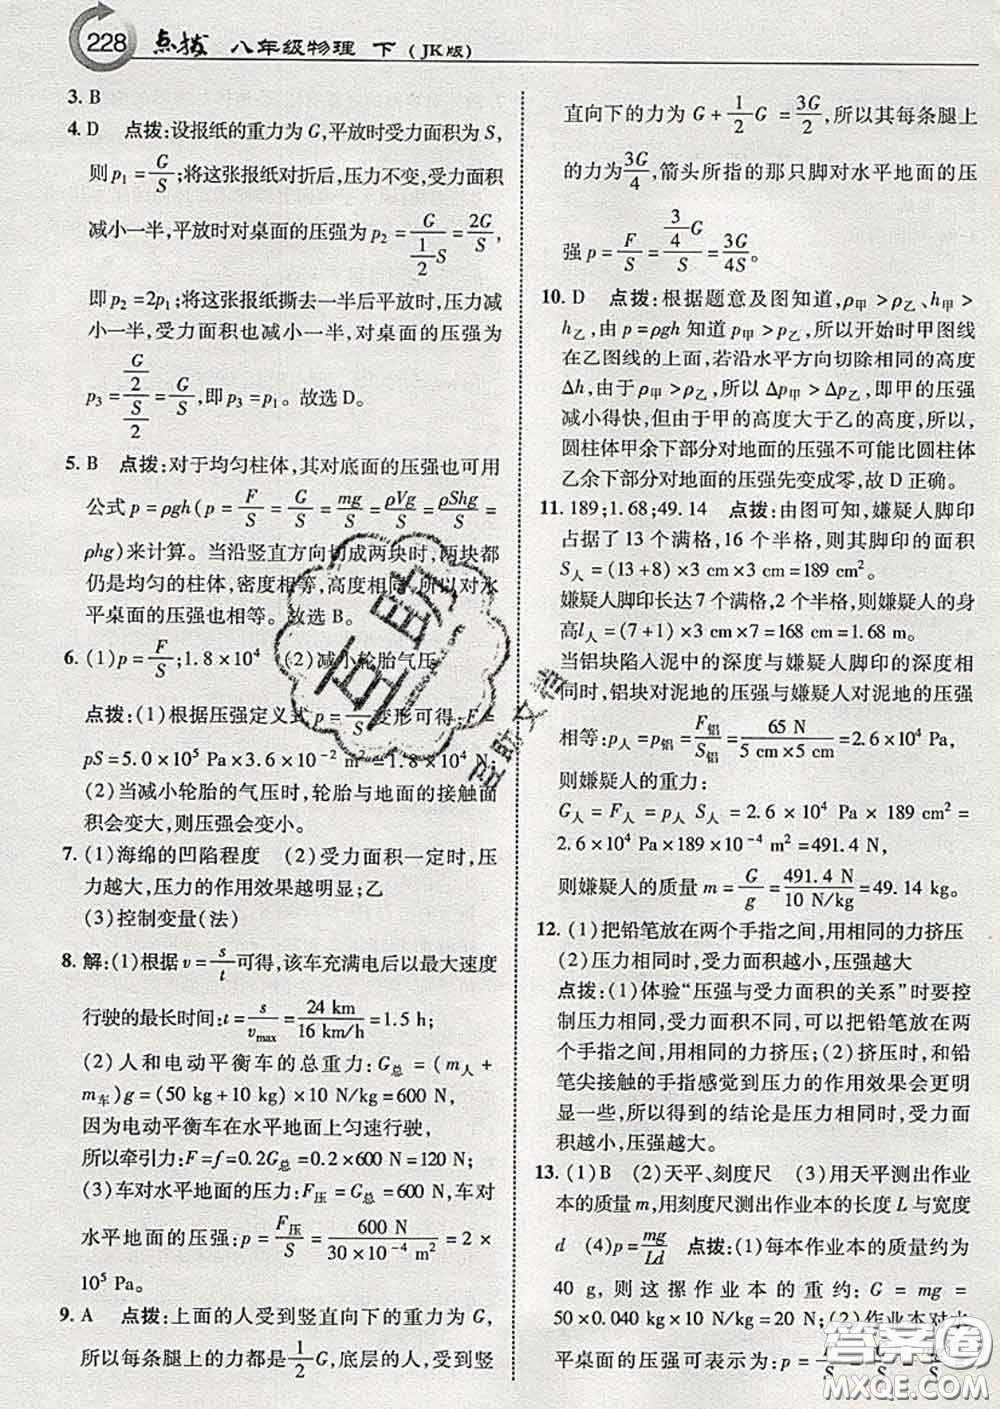 228 点拨 八年级物理 下 (JK版)
3. B
4. D 点拨:设报纸的重力为 G,平放时受力面积为 S,
则 p₁ = G/S;将这张报纸对折后,压力不变,受力面积
减小一半,平放时对桌面的压强为 p₂ = G/(1/2 S) = 2G/S,
即 p₂ = 2p₁;将这张报纸撕去一半后平放时,压力减
小一半,受力面积也减小一半,对桌面的压强为
p₃ = (G/2)/(S/2) = G/S,即 p₃ = p₁。故选 D。
5. B 点拨:对于均匀柱体,其对底面的压强也可用
公式 p = ρgh(p = F/S = G/S = mg/S = ρVg/S = ρShg/S =
ρhg)来计算。当沿竖直方向切成两块时,两块都
仍是均匀的柱体,密度相等,高度相同,所以对水
平桌面的压强也相等。故选 B。
6. (1) p = F/S;1.8×10⁴ (2)减小轮胎气压
点拨:(1)根据压强定义式 p = /S 变形可得:F =
pS = 5.0×10⁵ Pa×3.6×10⁻² m² = 1.8×10⁴ N;
(2)当减小轮胎的气压时,轮胎与地面的接触面
积会变大,则压强会变小。
7. (1)海绵的凹陷程度 (2)受力面积一定时,压
力越大,压力的作用效果越明显;乙
(3)控制变量(法)
8. 解:(1)根据 v = s/t 可得,该车充满电后以最大速度
行驶的最长时间:t = s/vmax = 24 km/16 km/h = 1.5 h;
(2)人和电动平衡车的总重力:G总 = (m人 +
m车)g = (50 kg+10 kg)×10 N/kg = 600 N,
因为电动平衡车在水平地面上匀速行驶,
所以牵引力:F = f = 0.2G总 = 0.2×600 N = 120 N;
(3)车对水平地面的压力:F压 = G总 = 600 N,车对
水平地面的压强:p = F压/S = 600 N/30×10⁻⁴ m² = 2×
10⁵ Pa。
9. A 点拨:上面的人受到竖直向下的重力为 G,
所以每条腿上的力都是 1/2 G,底层的人,受到竖
直向下的力为 G + 1/2 G = 3G/2,所以其每条腿上
的力为 3G/4,箭头所指的那只脚对水平地面的压
强 p = F/S = (3/4 G)/S = 3G/4S。
10. D 点拨:根据题意及图知道,ρ甲 > ρ乙、h甲 >
h乙,由 p = ρgh 知道 p甲 > p乙,所以开始时甲图线
在乙图线的上面,若沿水平方向切除相同的高度
Δh,由于 ρ甲 > ρ乙,所以 Δp甲 > Δp乙,即甲的压强
减小得快,但由于甲的高度大于乙的高度,所以,
圆柱体甲余下部分对地面的压强不可能比圆柱体
乙余下部分对地面的压强先变成零,故 D 正确。
11. 189;1.68;49.14 点拨:由图可知,嫌疑人脚印
占据了 13 个满格,16 个半格,则其脚印的面积
S人 = (13+8)×3 cm×3 cm = 189 cm²。
嫌疑人脚印长达 7 个满格,2 个半格,则嫌疑人的身
高 l人 = (7+1)×3 cm×7 = 168 cm = 1.68 m。
当铝块陷入泥中的深度与嫌疑人脚印的深度相同
时,铝块对泥地的压强与嫌疑人对泥地的压强
相等:p人 = p铝 = F铝/S铝 = 65 N/5 cm×5 cm = 2.6×10⁴ Pa,
则嫌疑人的重力:
G人 = F人 = p人 S人 = 2.6×10⁴ Pa×189 cm² =
2.6×10⁴ Pa×189×10⁻⁴ m² = 491.4 N,
则嫌疑人的质量 m = G/g = 491.4 N/10 N/kg = 49.14 kg。
12. (1)把铅笔放在两个手指之间,用相同的力挤压
(2)压力相同时,受力面积越小,压强越大
点拨:(1)体验“压强与受力面积的关系”时要控
制压力相同,受力面积不同,可以把铅笔放在两
个手指之间,用相同的力挤压;(2)挤压时,和铅
笔尖接触的手指感觉到压力的作用效果会更明
显一些,所以得到的结论是压力相同时,受力面
积越小,压强越大。
13. (1)B (2)天平、刻度尺 (3)用天平测出作业
本的质量 m,用刻度尺测出作业本的长度 L 与宽度
d (4) p = mg/Ld 点拨:(1)每本作业本的质量约为
40 g,则这摞作业本的重约:G = mg =
50×0.040 kg×10 N/kg = 20 N;(2)作业本对水
平桌面的压强可表示为:p = F/S = G/S =
互助
互助文谊
答案圈
MXQE.COM